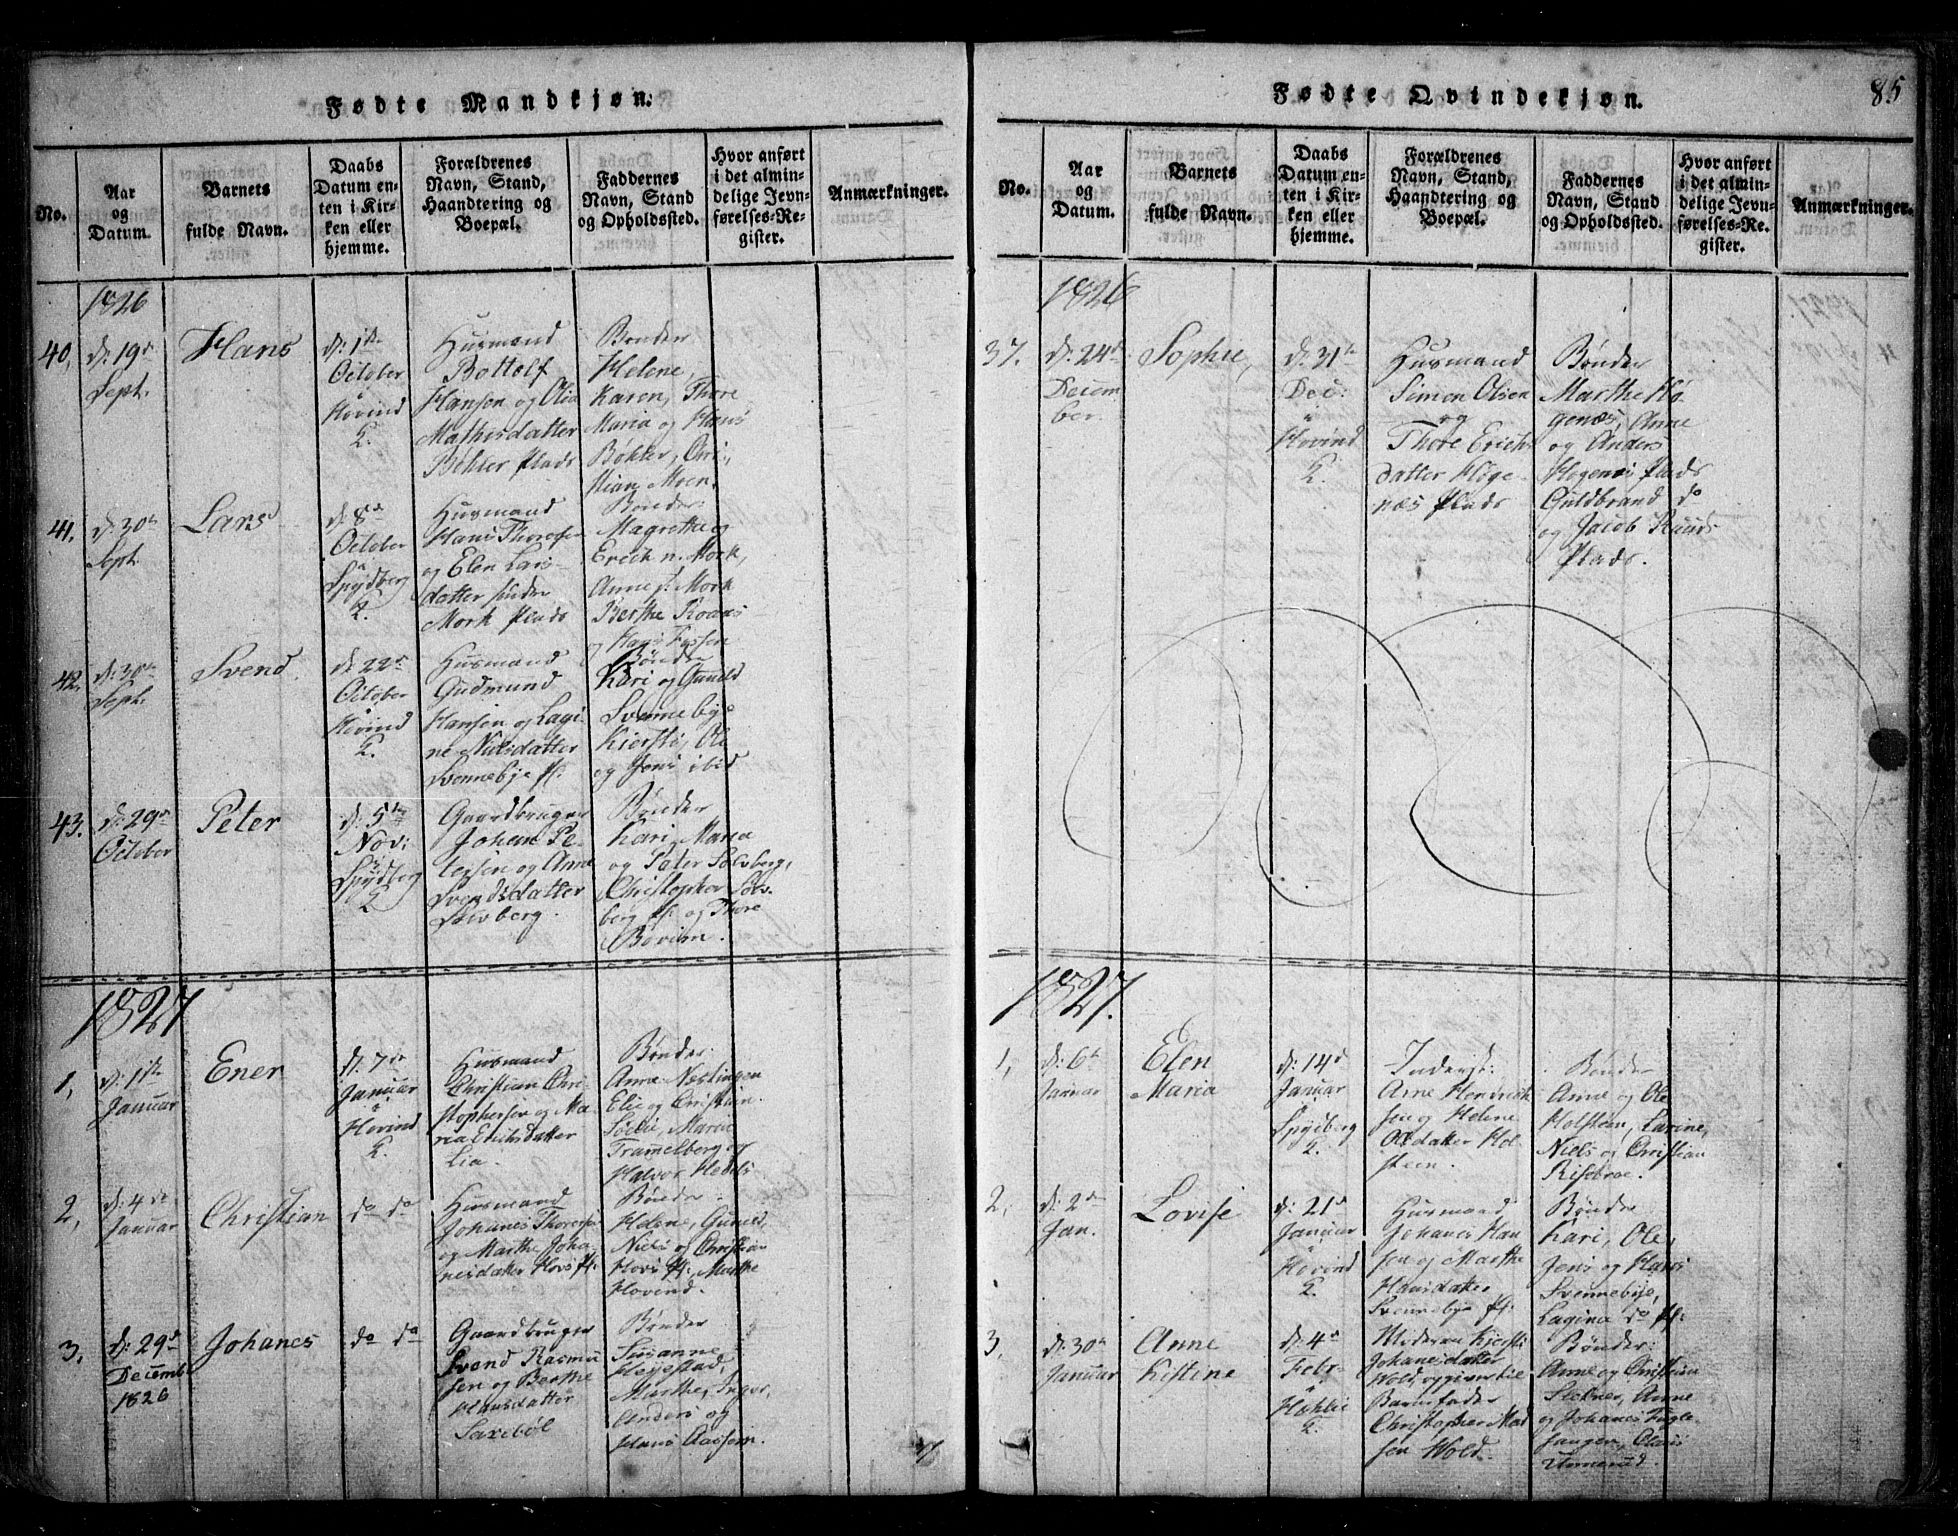 85
Fødte Mandkjøn.
No.
Aar
og
Datum.
Barnets
fulde Navn.
Daabs
Datum en-
ten i Kir-
ken eller
hjemme.
Forældrenes
Navn, Stand,
Haandtering og
Boepæl.
Faddernes
Navn, Stand
og Opholdssted.
Hvor anført
i det almin-
delige Jevn-
førelses-Re-
gister.
Anmærkninger.
1826
40,
d: 19de
Sept.
Hans
d: 1ste
October
Høvind
K.
Husmand
Bottolf
Hansen og Olia
Mathisdatter
Böhler Plads
Bønder
Helene,
Karen, Thore
Maria og Hans
Bøhler, Chri-
stian Moen.
41.
d: 30te
Sept.
Lars
d: 8de
October
Spydberg
K.
Husmand
Hans Thoresen
og Elen Lars-
datter søndre
Mork Plads
Bønder:
Magrethe og
Erich n. Mork,
Anne s: Mork
Berthe
og
42.
d: 30te
Sept.
Svend
d: 22de
October
Høvind
K.
Husmand
Gudmund
Hansen og Lagi-
ne Nielsdatter
Svennebye Pl:
Bønder
Kari og Gunild
Svennebye
Kiersti, Ole
og Jens ibid
43.
d: 29de
October
Peter
d: 5te
Nov:
Spydberg
K
Gaardbruger
Johan Pe-
tersen og Anne
Svendsdatter
Solvberg.
Bønder
Kari, Maria
og Peter Solvberg,
Christopher Solv-
berg Pl: og Thore
Bovim.
1827
1,
d: 1ste
Januar
Ener
d. 7de
Januar
i
Høvind
K.
Husmand
Christian Chri-
stophersen og Ma-
ria Erichsdatter
Lia.
Bønder:
Anne Næslingen
Elie og Christian
Maria
og
Halvor
2,
d: 4de
Januar
Christian
do do
Husmand
Johanes Thoresen
og Marthe Joha-
nesdatter Hovs Pl:
Bønder
Helene, Guneld,
Niels og Christian
Hovs Pl: Marthe
Hovend.
3,
d: 29de
Decemb
1826
Johanes
do do
Gaardbruger
Svend Rasmu
sen og Berthe
Hansdatter
Saxebøl
Bønder
Susanne
Marthe, Inger,
Anders og
Hans
Fødte Qvindekjøn.
No.
Aar
og
Datum.
Barnets
fulde Navn.
Daabs
Datum en-
ten i Kir-
ken eller
hjemme.
Forældrenes
Navn, Stand,
Haandtering og
Boepæl.
Faddernes
Navn, Stand
og Opholdssted.
Hvor anført
i det almin-
delige Jevn-
førelses-Re-
gister.
Anmærkninger.
1826
37.
d: 24de
Decem
ber.
Sophie,
d: 31te
Dec:
i
Høvind
K.
Husmand
Simon Olsen
og
Thore Erichs
datter Høge-
næs Plads
Bønder
Marthe Hø
genæs, Anne
og Anders
Høgenæs Plads
Guldbrand do
og Jacob Ruuds
Plads.
1827.
1,
d: 6te
Januar
Elen
Maria
d: 14de
Januar
Spydberg
K.
Inderst:
Arne Hendrich
sen og Helene
Olsdatter Hol-
steen.
Bønder
Anne og Ole
Holsteen, Larine,
Niels og Christian
Risebroe.
2,
d: 2de
Jan.
Lovise
d: 21de
Januar
i
Høvind
K.
Husmand
Johanes Han
sen og Marthe
Hansdatter
Svennebye Pl:
Bønder
Kari, Ole,
Jens og Hans
Svennebye,
Lagina do Pl:
3,
d: 30te
Januar
Anne
Kistine
d. 4de
Febr:
i
K.
Moderen Kiersti
Johanesdatter
Wold, opgiven til
Barnefader
Christopher Mad
sen Wold.
Bønder:
Anne og Christian
Anne
og Johanes Fugle-
sangen, Olaus